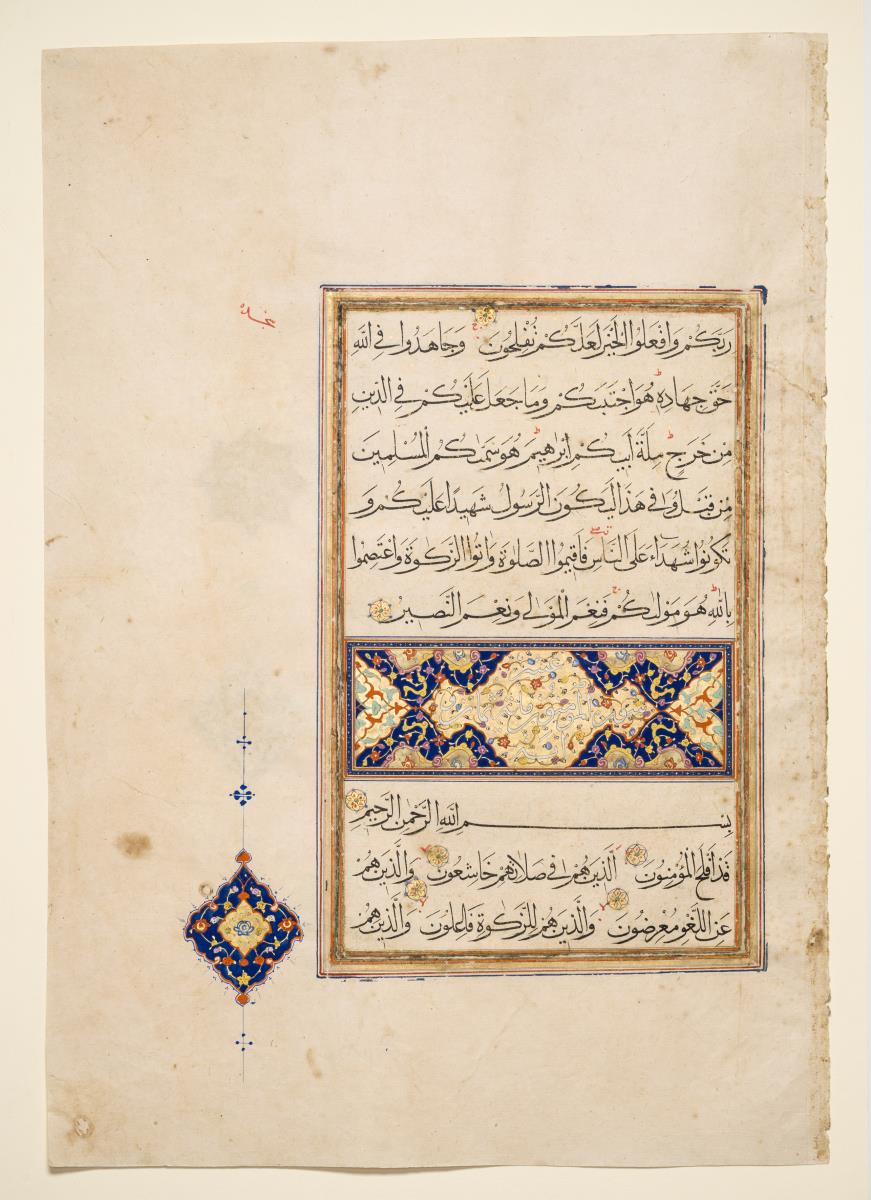 سجده
رَبَّكُمْ وَافْعَلُوا الْخَيْرَ لَعَلَّكُمْ تُفْلِحُونَ وَجَاهِدُوا فِي اللَّهِ
حَقَّ جِهَادِهِ هُوَ اجْتَبَىكُمْ وَمَا جَعَلَ عَلَيْكُمْ فِي الدِّينِ
مِنْ حَرَجٍ مِلَّةَ أَبِيكُمْ إِبْرَاهِيمَ هُوَ سَمَّىكُمُ الْمُسْلِمِينَ
مِنْ قَبْلُ وَفِي هَذَا لِيَكُونَ الرَّسُولُ شَهِيدًا عَلَيْكُمْ وَ
تَكُونُوا شُهَدَاءَ عَلَى النَّاسِ فَاَقِيمُوا الصَّلَوةَ وَاتُوا الزَّكَوةَ وَاعْتَصِمُوا
بِاللَّهِ هُوَ مَوْلَىكُمْ فَنِعْمَ الْمَوْلَى وَنِعْمَ النَّصِيرُ
بِسْمِ اللَّهِ الرَّحْمَنِ الرَّحِيمِ
قَدْ اَفْلَحَ الْمُؤْمِنُونَ الَّذِينَ هُمْ فِي صَلَاتِهِمْ خَاشِعُونَ وَالَّذِينَ هُمْ
عَنِ اللَّغْوِ مُعْرِضُونَ وَالَّذِينَ هُمْ لِلزَّكَوةِ فَاعِلُونَ وَالَّذِينَ هُمْ